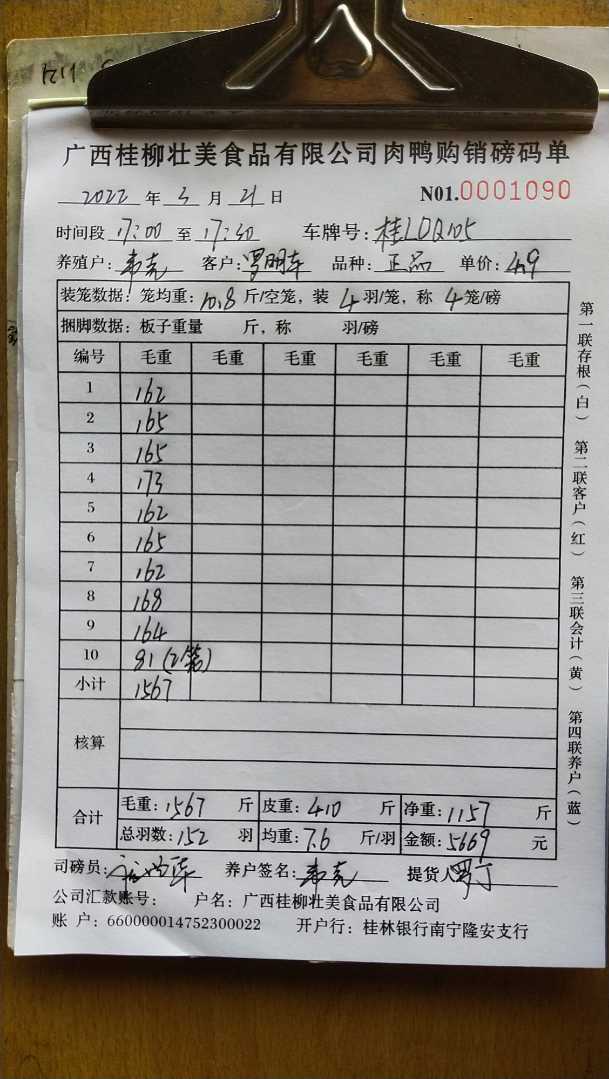 广西桂柳壮美食品有限公司肉鸭购销磅码单
2022 年 3 月 21 日 N01.0001090
时间段 17:00 至 17:30 车牌号: 桂LDQ105
养殖户: 韦克 客户: 罗明车 品种: 正品 单价: 4.9
装笼数据: 笼均重: 10.8 斤/空笼, 装 4 羽/笼, 称 4 笼/磅
捆脚数据: 板子重量 斤, 称 羽/磅
编号 毛重 毛重 毛重 毛重 毛重 毛重
1 162
2 165
3 165
4 173
5 162
6 165
7 162
8 168
9 164
10 81 (2笼)
小计 1567
核算
合计 毛重: 1567 斤 皮重: 410 斤 净重: 1157 斤
总羽数: 152 羽 均重: 7.6 斤/羽 金额: 5669 元
司磅员: 养户签名: 韦克 提货人
公司汇款账号: 户名: 广西桂柳壮美食品有限公司
账 户: 660000014752300022 开户行: 桂林银行南宁隆安支行
第一联存根(白) 第二联客户(红) 第三联会计(黄) 第四联养户(蓝)